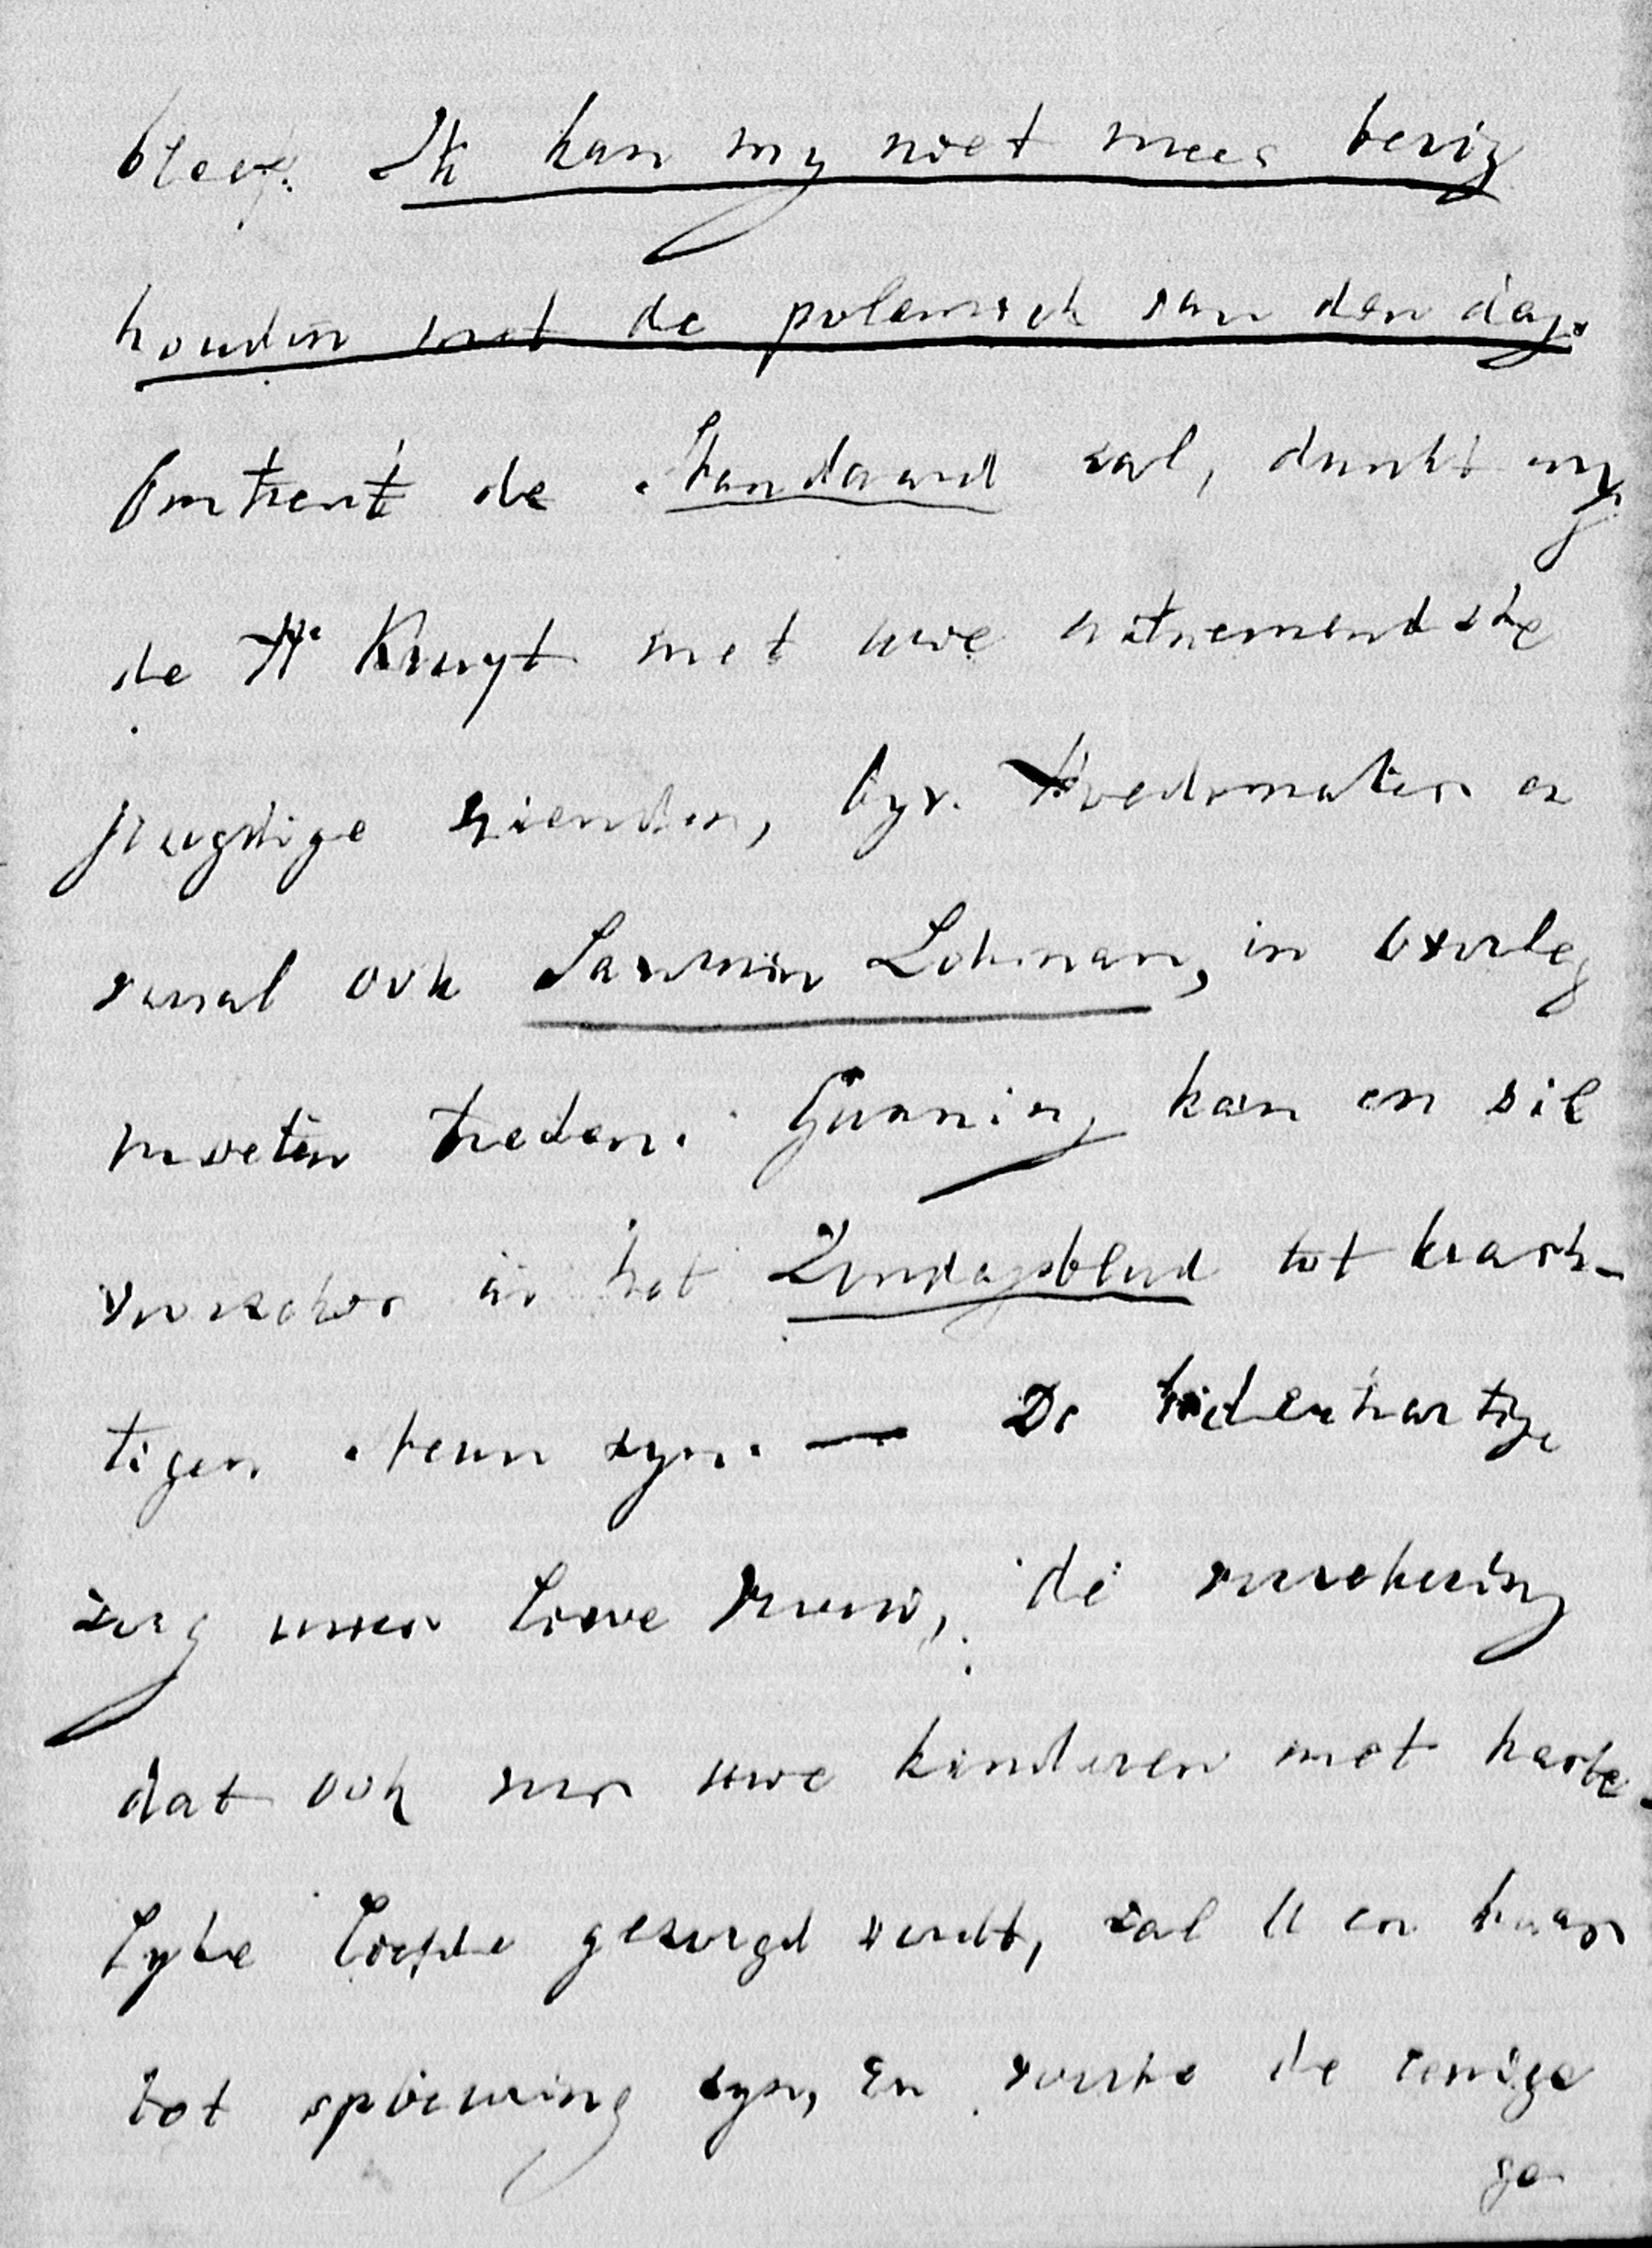 bleef. Ik kan my niet meer bezig
houden met de polemiek van den dag.
Omtrent de Standaard zal, dunkt my,
de Hr Kruyt met uwe uitnemendste
jeugdige vrienden, byv. Hoedemaker en
vooral ook Savornin Lohman, in overleg
moeten treden. Gunning kan en zil
voorzeker in het Zondagsblad tot krach-
tigen steun zyn. — De teederhartige
zorg uwer lieve vrouw, de verzekering
dat ook voor uwe kinderen met harte-
lyke liefde gezorgd wordt, zal U en haar
tot opbeuring zyn, en voorts de eenige
ge